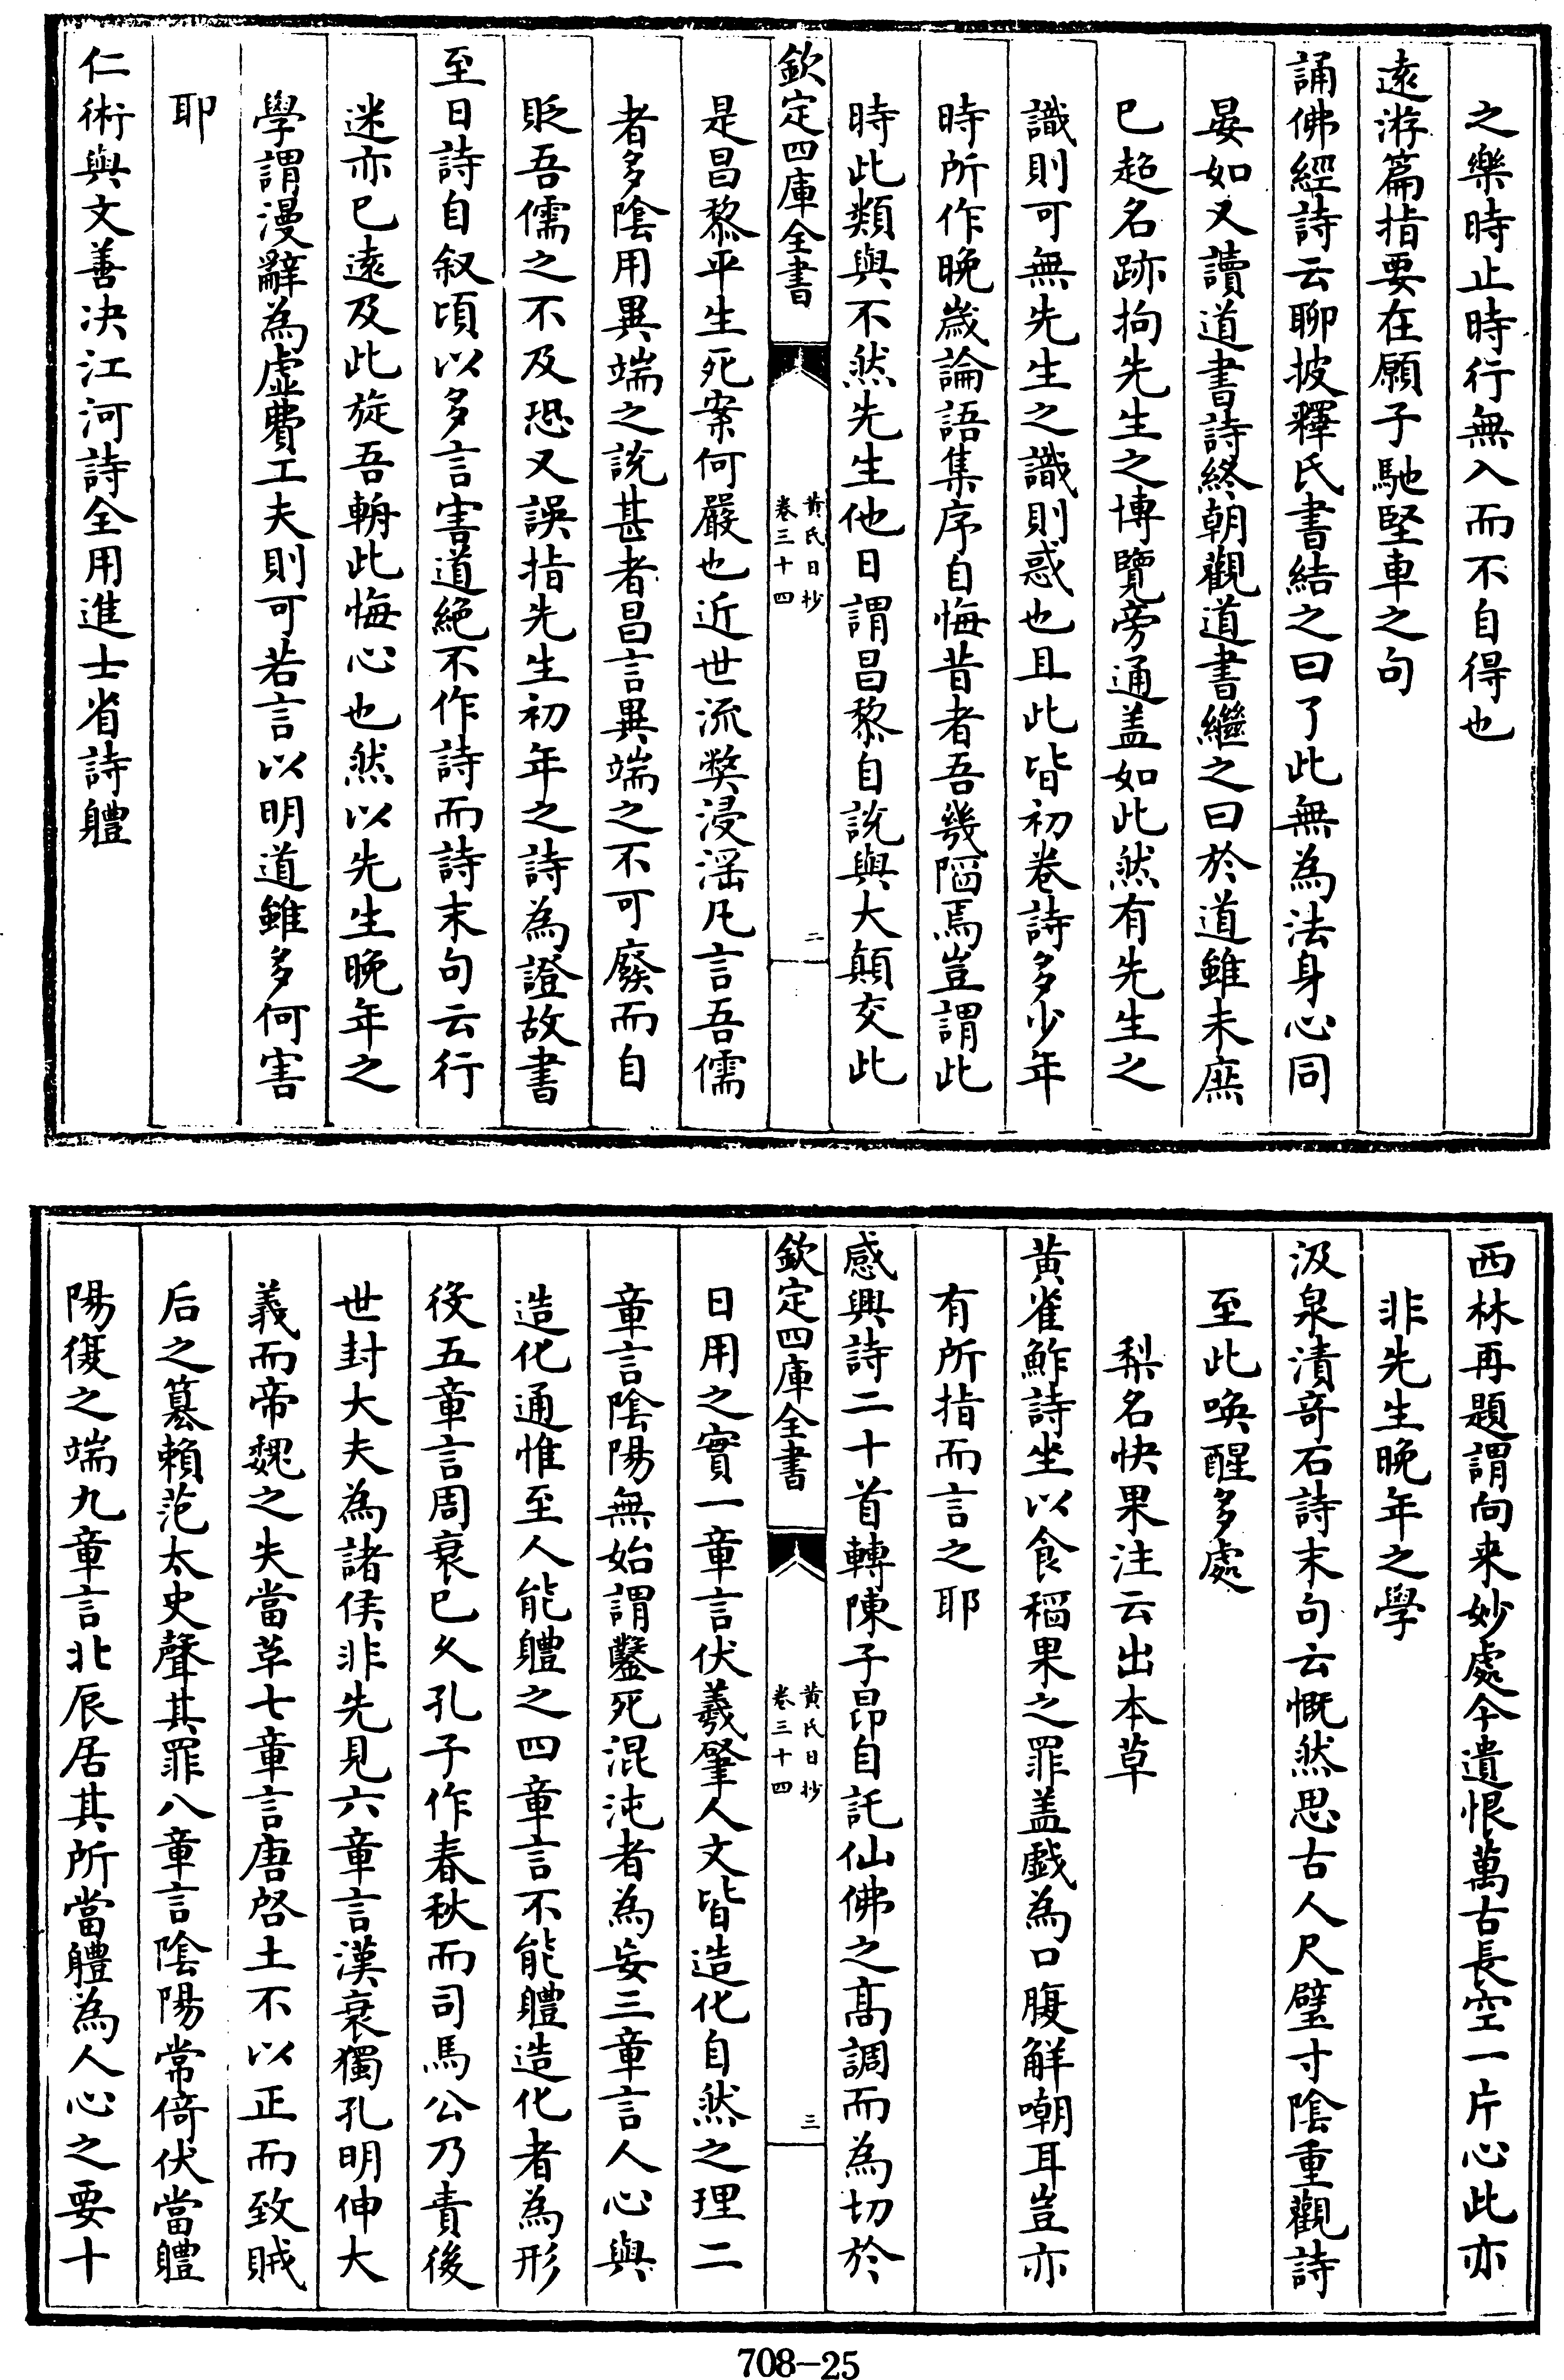 之樂時止時行無入而不自得也
遠游篇指要在願子馳堅車之句
誦佛經詩云聊披釋氏書結之曰了此無為法身心同
晏如又讀道書詩終朝觀道書繼之曰於道雖未庶
已超名跡拘先生之博覽旁通盖如此然有先生之
識則可無先生之識則惑也且此皆初卷詩多少年
時所作晚歲論語集序自悔昔者吾幾陷焉豈謂此
時此類與不然先生他日謂昌黎自說與大顛交此
欽定四庫全書
黄氏日抄
卷三十四
二
是昌黎平生死案何嚴也近世流獘浸滛凡言吾儒
者多陰用異端之說甚者昌言異端之不可廢而自
貶吾儒之不及恐又誤指先生初年之詩為證故書
至日詩自叙頃以多言害道絶不作詩而詩末句云行
迷亦已遠及此旋吾輈此悔心也然以先生晚年之
學謂漫辭為虚費工夫則可若言以明道雖多何害
耶
仁術與文善决江河詩全用進士省詩體
西林再題謂向来妙處今遺恨萬古長空一片心此亦
非先生晚年之學
汲泉漬竒石詩末句云慨然思古人尺璧寸陰重觀詩
至此喚醒多處
梨名快果注云出本草
黄雀鮓詩坐以食稻果之罪盖戱為口腹解嘲耳豈亦
有所指而言之耶
感興詩二十首轉陳子昂自託仙佛之髙調而為切於
欽定四庫全書
黄氏日抄
卷三十四
三
日用之實一章言伏羲肇人文皆造化自然之理二
章言陰陽無始謂鑿死混沌者為妄三章言人心與
造化通惟至人能體之四章言不能體造化者為形
役五章言周衰已久孔子作春秋而司馬公乃責後
世封大夫為諸侯非先見六章言漢衰獨孔明伸大
義而帝魏之失當革七章言唐啓土不以正而致賊
后之簒賴范太史聲其罪八章言陰陽常倚伏當體
陽復之端九章言北辰居其所當體為人心之要十
708-25